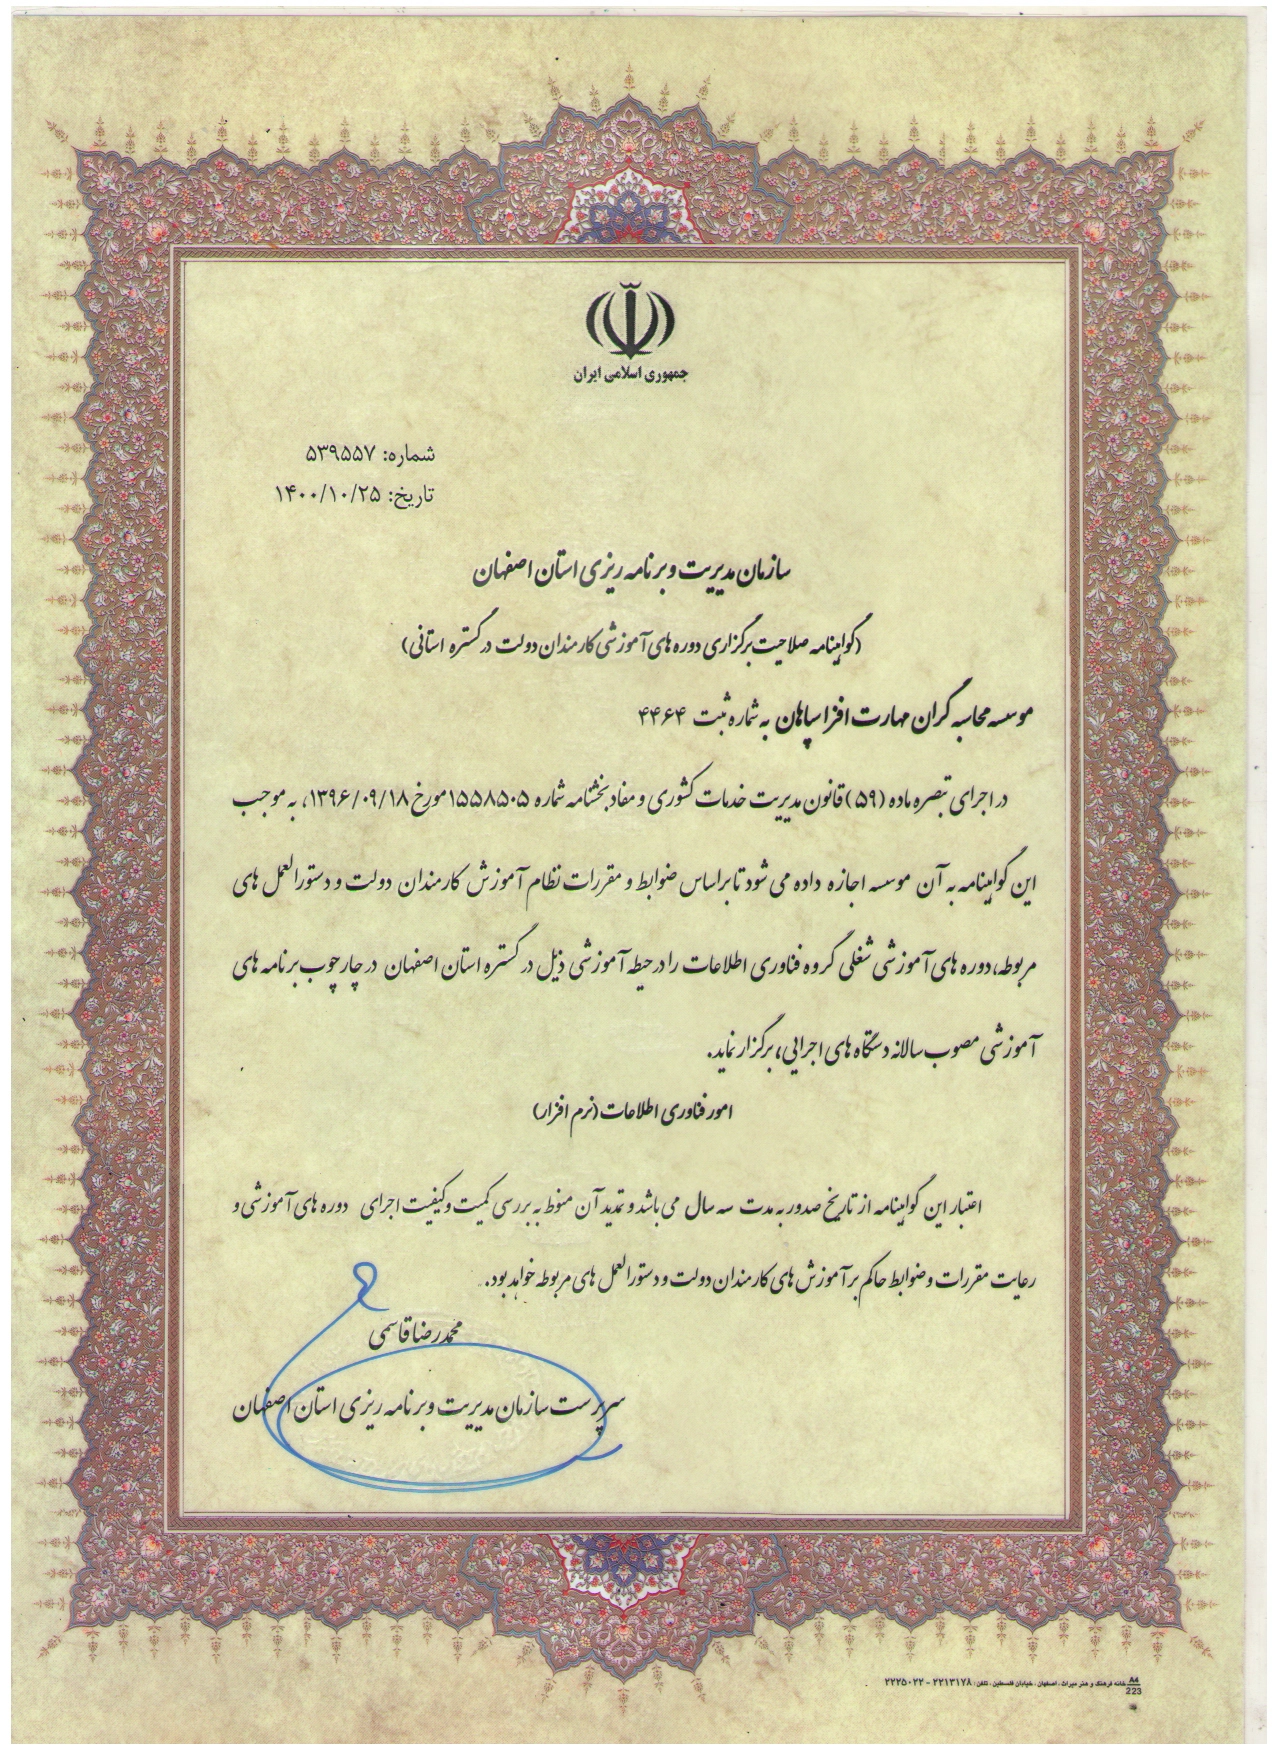 جمهوری اسلامی ایران
شماره: ۵۳۹۵۵۷
تاریخ: ۱۴۰۰/۱۰/۲۵
سازمان مدیریت و برنامه ریزی استان اصفهان
(گواهینامه صلاحیت برگزاری دوره های آموزشی کارمندان دولت در گستره استانی)
موسسه محاسبه گران مهارت افزا سپاهان به شماره ثبت ۴۴۶۴
در اجرای تبصره ماده (۵۹) قانون مدیریت خدمات کشوری و مفاد بخشنامه شماره ۱۵۵۸۵۰۵ مورخ ۱۳۹۶/۰۹/۱۸، به موجب
این گواهینامه به آن موسسه اجازه داده می شود تا براساس ضوابط و مقررات نظام آموزش کارمندان دولت و دستورالعمل های
مربوطه، دوره های آموزشی شغلی گروه فناوری اطلاعات را در حیطه آموزشی ذیل در گستره استان اصفهان در چارچوب برنامه های
آموزشی مصوب سالانه دستگاه های اجرایی، برگزار نماید.
امور فناوری اطلاعات (نرم افزار)
اعتبار این گواهینامه از تاریخ صدور به مدت سه سال می باشد و تمدید آن منوط به بررسی کمیت و کیفیت اجرای دوره های آموزشی و
رعایت مقررات و ضوابط حاکم بر آموزش های کارمندان دولت و دستورالعمل های مربوطه خواهد بود.
محمدرضا قاسمی
سرپرست سازمان مدیریت و برنامه ریزی استان اصفهان
A4
خانه فرهنگ و هنر میراث، اصفهان، خیابان فلسطین، تلفن: ۲۲۱۳۱۷۸ - ۲۲۲۵۰۲۲
223